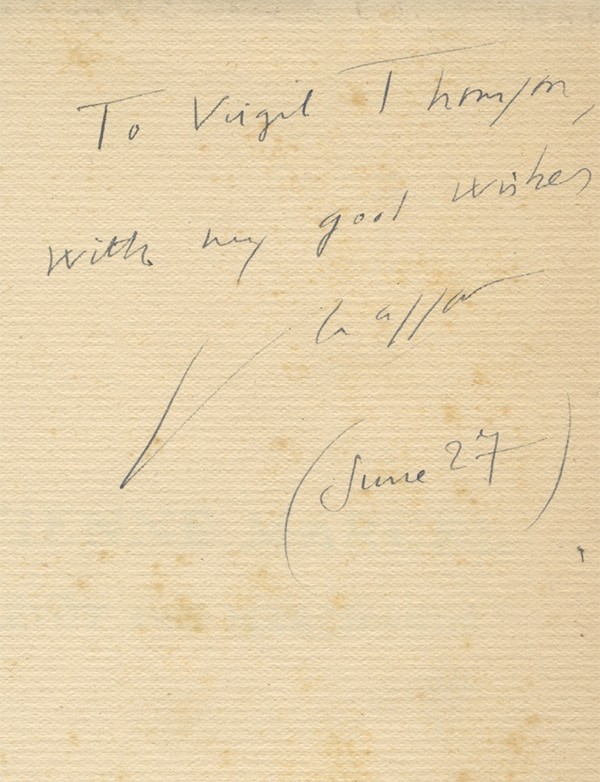 To Virgil Thomson,
with my good wishes
(June 27)